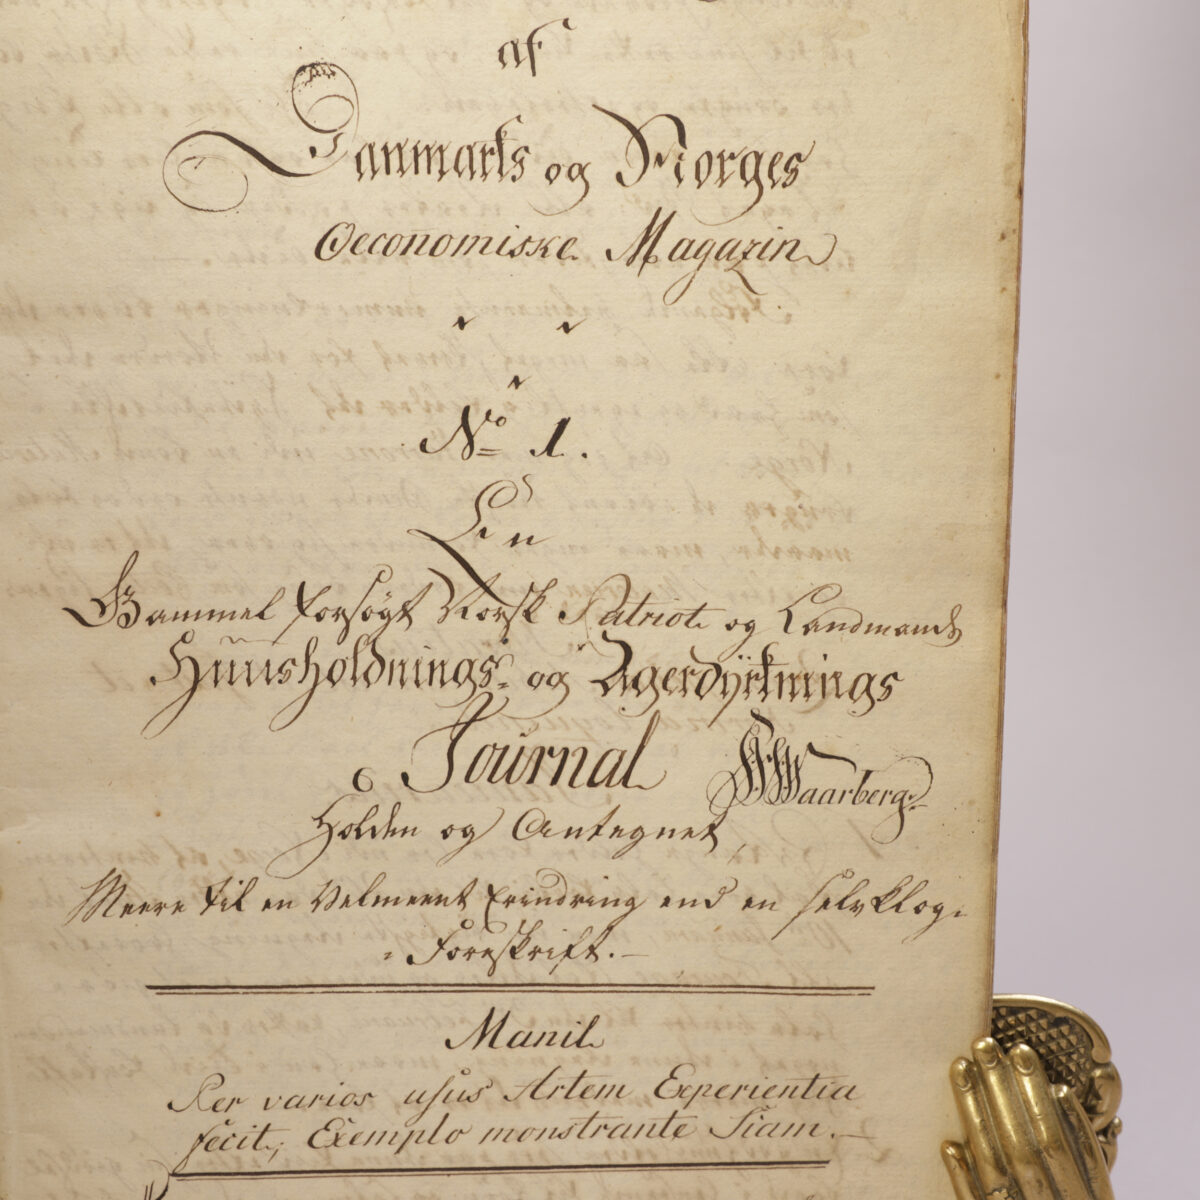 af
Danmarks og Norges
Oeconomiske Magazin
No 1.
En
Gammel forsøgt Norsk Patriot og Landmands
Huusholdnings- og Agerdÿrknings
Journal
Waarberg
Holden og Antegnet,
Meere til en Velmeent Erindring end en selvklog
Foreskrift.
Manil
Per varios usus Artem Experientia
fecit; Exemplo monstrante Viam.